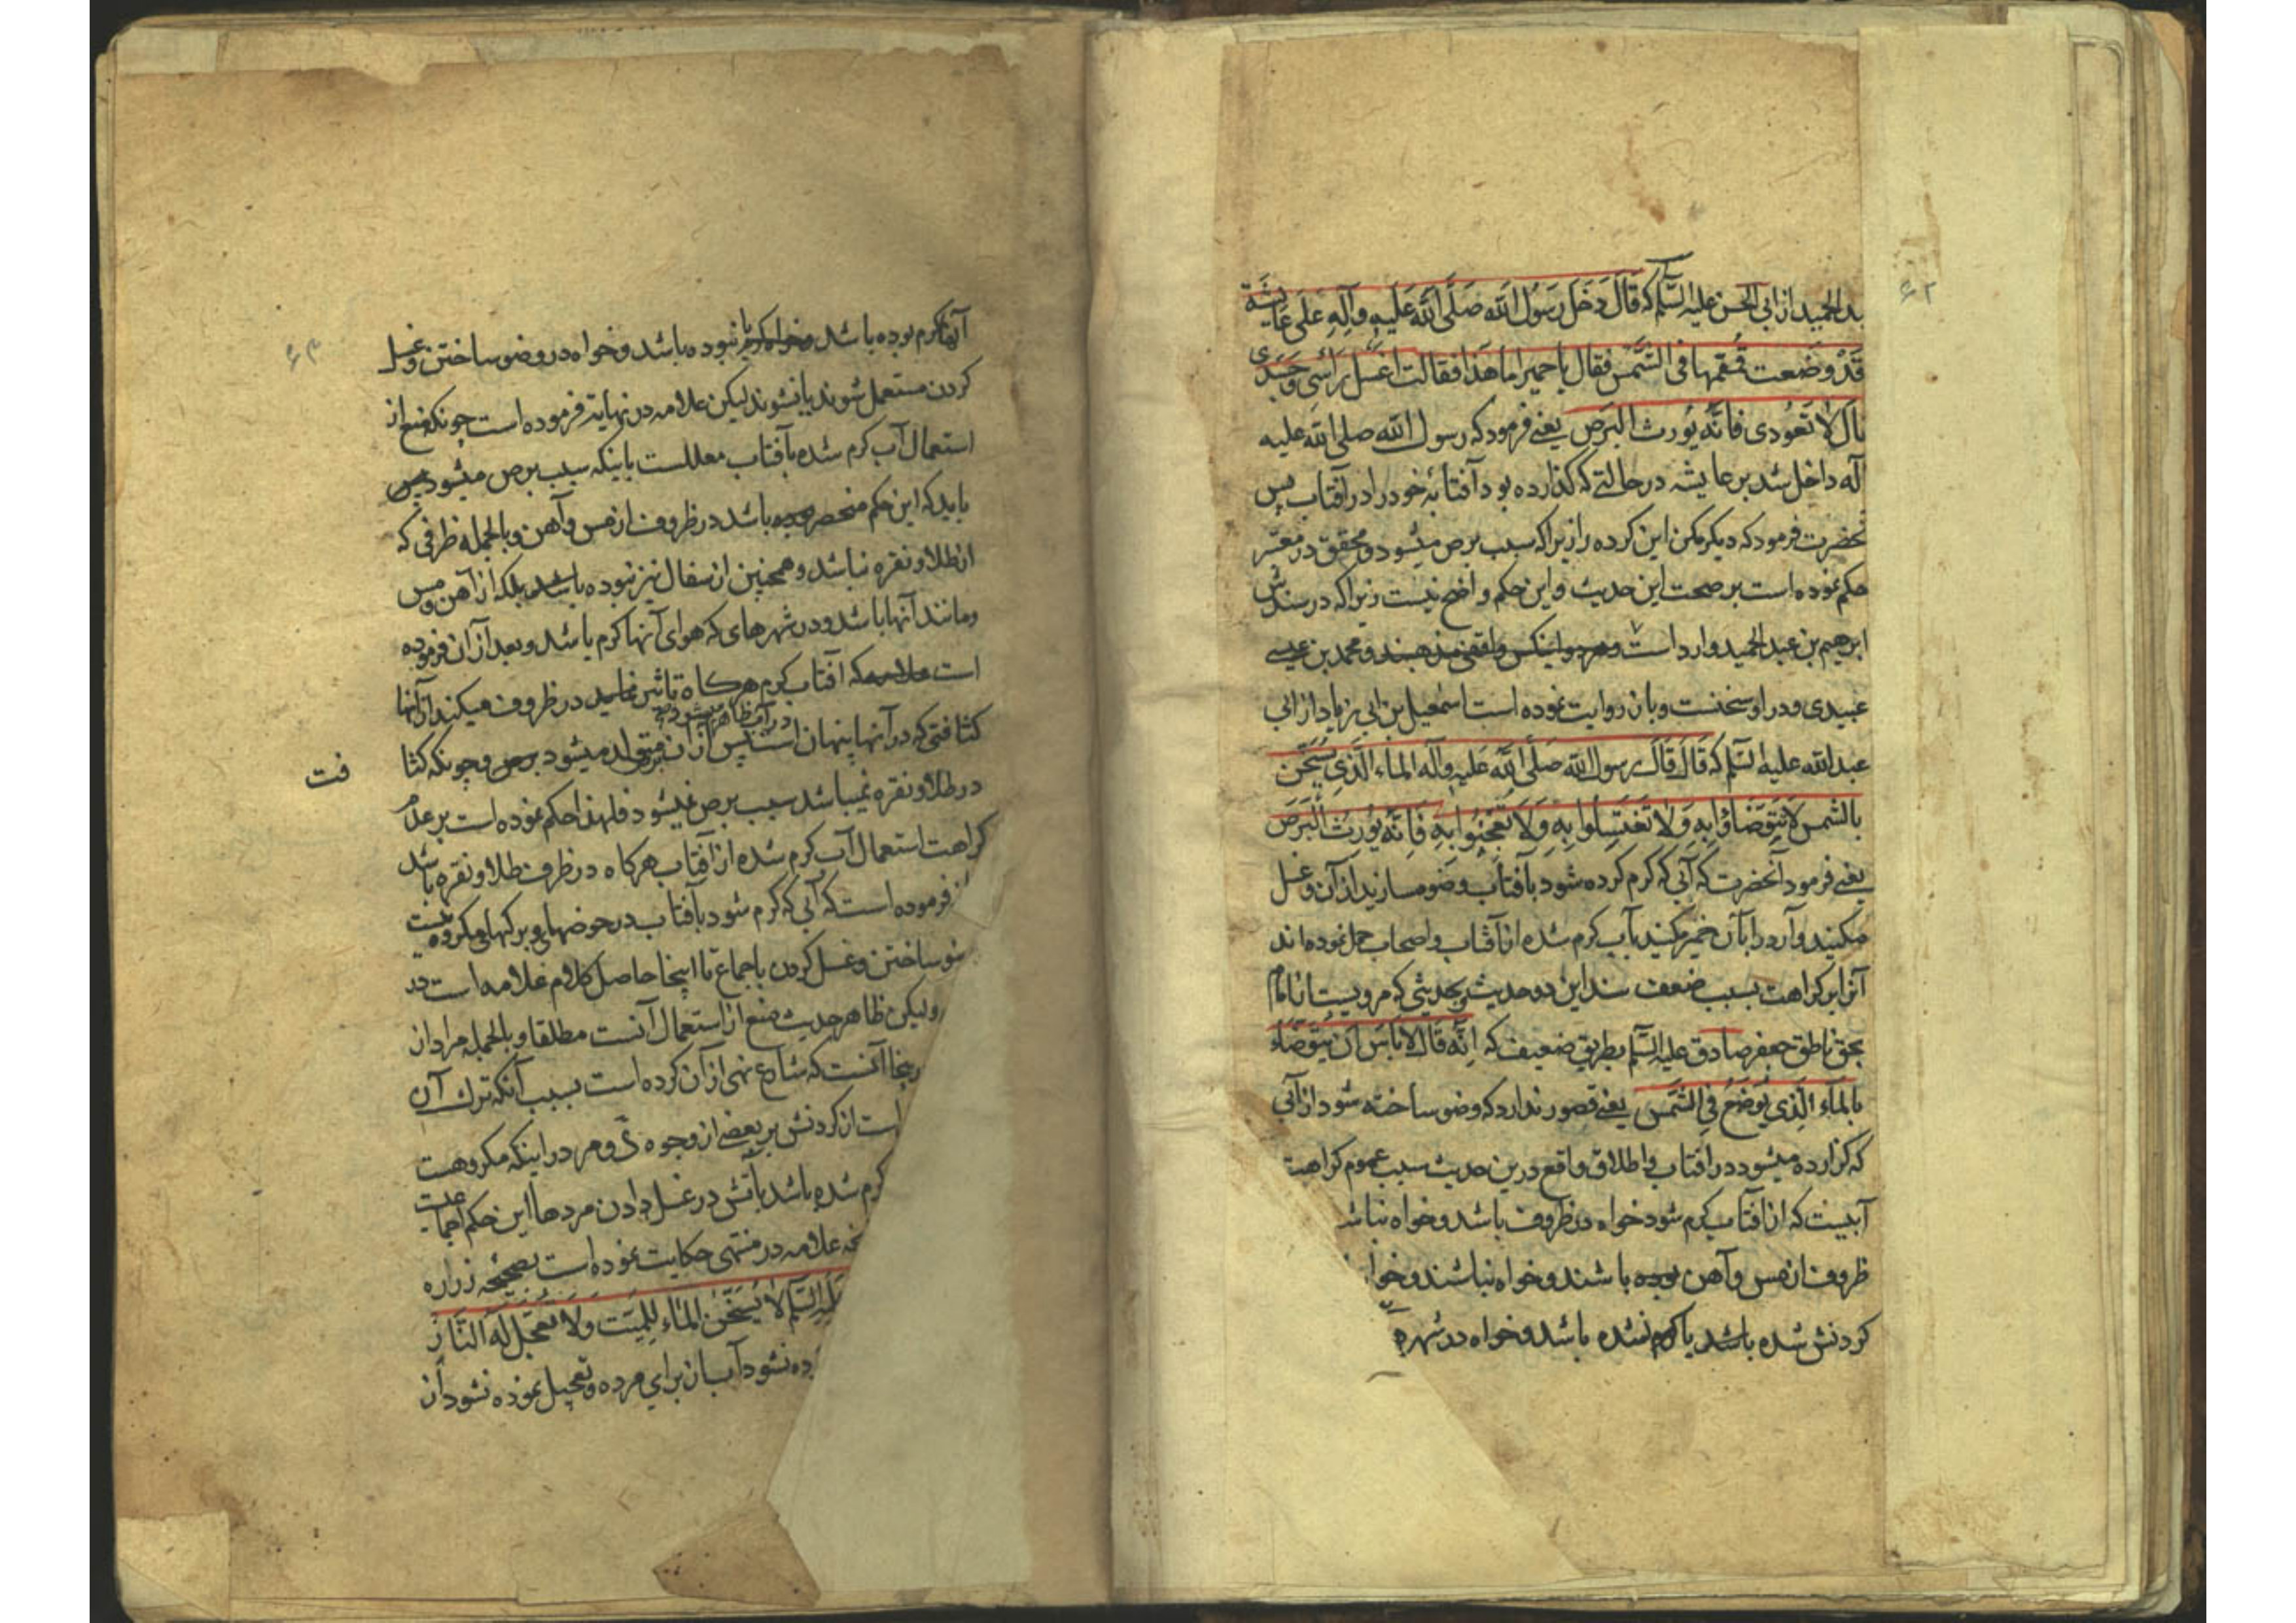 ۶۲
بد الحمید از ابی الحسن علیه السلم که قَالَ دَخَلَ رَسُولُ اللّه صَلَّی اللّهُ عَلَیهِ وآلِهِ عَلَی عَایِشَة
قَدْ وضَعت قُمقمها فی الشَّمسِ فقال یا حمیرا ما هَذا فقالت اغسل رَأسی وجَسَدی
قال لا تَعُودی فانّهُ یُورث البَرَص یعنے فرمود که رسول الله صلی الله علیه
آله داخل شد بر عایشه در حالتے که کذارده بود آفتابۀ خود را در آفتاب پس
نحضرت فرمود که دیکر مکن این کرده را زیرا که سبب برص میشود و محقق در معتبر
حکم نموده است بر صحت این حدیث و این حکم واضح نیست زیرا که در سندش
ابرهیم بن عبد الحمید وارد است و هر دو اینکس واقفی مذهبند و محمد بن عیسے
عبیدی و در او سخنست و بان روایت نموده است اسمعیل بن ابی زیاد از ابی
عبد الله علیه السّلم که قَالَ قَالَ رسول الله صَلَّی اللَّه عَلَیهِ وآله الماء الّذی یُسَخَّن
بالشمس لا تتوضاؤا بِهِ وَلا تَغتَسِلوا بِهِ وَلا تَعجِنُوا بِهِ فَاِنَّه یُورِث البَرَصَ
یعنے فرمود آنحضرت که آبی که کرم کرده شود بآفتاب وضو مسازید از آن و غسل
مکنید و آرد را بآن خمیر مکنید بآب کرم شده از آفتاب و اصحاب حمل نموده اند
آنرا بر کراهت بسبب ضعف سند این دو حدیث و بحدیثی که مرویست از امام
بحق ناطق جعفر صادق علیه السّلم بطریق ضعیف که اِنّه قَالَ لا بَاسَ اَن یُتَوَضّاءُ
بالمآء الَّذی یُوضَعُ فِی الشَّمسِ یعنے قصور ندارد که وضو ساخته شود از آبی
که کزارده میشود در افتاب و اطلاق واقع درین حدیث سبب عموم کراهت
آبیست که از افتاب کرم شود خواه در ظروف باشد و خواه نباشد
ظروف از مس و آهن بوده باشند و خواه نباشند و خواه
کردنش شده باشد یا کرم نشده باشد و خواه در شهر
آنها کرم بوده باشد و خواه کرم نبوده باشد و خواه در وضو ساختن و غسل
کردن مستعمل شوند یا نشوند لیکن علامه در نهایة فرموده است چونکه منع از
استعمال آب کرم شده بآفتاب معللست باینکه سبب برص میشود پس
باید که این حکم منحصر بوده باشد در ظروف از مس و آهن و بالجمله ظرفی که
از طلا و نقره نباشد و همچنین از سفال نیز نبوده باشد بلکه از آهن و مس
و مانند آنها باشد و در شهر های که هوای آنها کرم باشد و بعد از ان فرموده
است علامه که آفتاب کرم هرکاه تاثیر نماید در ظروف میکند از آنها
در آب ظاهر میشود
کثافتی که در آنها پنهان است پس از ان متولد میشود برص و چونکه کثا
فت
در طلا و نقره نمیباشد سبب برص نمیشود فلهذا حکم نموده است بر عدم
کراهت استعمال آب کرم شده از افتاب هرکاه در ظرف طلا و نقره باشد
فرموده است که آبی که کرم شود بآفتاب در حوضها و برکها مکروه نیست
ضو ساختن و غسل کردن باجماع تا اینجا حاصل کلام علامه است در
ولیکن ظاهر حدیث منع از استعمال آنست مطلقا و بالجمله مراد از
ینجا آنست که شارع نهی از آن کرده است بسبب آنکه ترک آن
است از کردنش بر بعضے از وجوه
کرم شده باشد بآتش در غسل دادن مردها این حکم اجماعیست
علامه در منتهی حکایت نموده است بصحیحه زراره
علیه السّلم لا یُسَخَّن الماء لِلمیّت وَلا تُعَجِّل لَهُ النّارَ
ده نشود آب از برای مرده و تعجیل نموده نشود آن